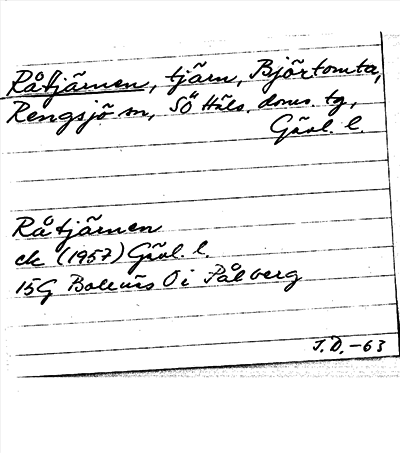 Råtjärnen, tjärn, Björtomta,
Rengsjö sn, SÖ Häls. doms. tg,
Gävl. l.
Råtjärnen
ek (1957) Gävl. l.
15G Bollnäs O i Pålberg
J.D. -63